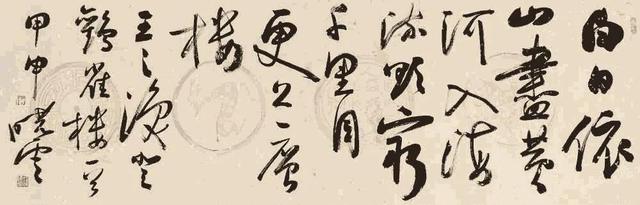 白日依
山盡黃
河入海
流欲窮
千里目
更上一層
樓
王之渙登
鸛雀樓
甲申曉雲